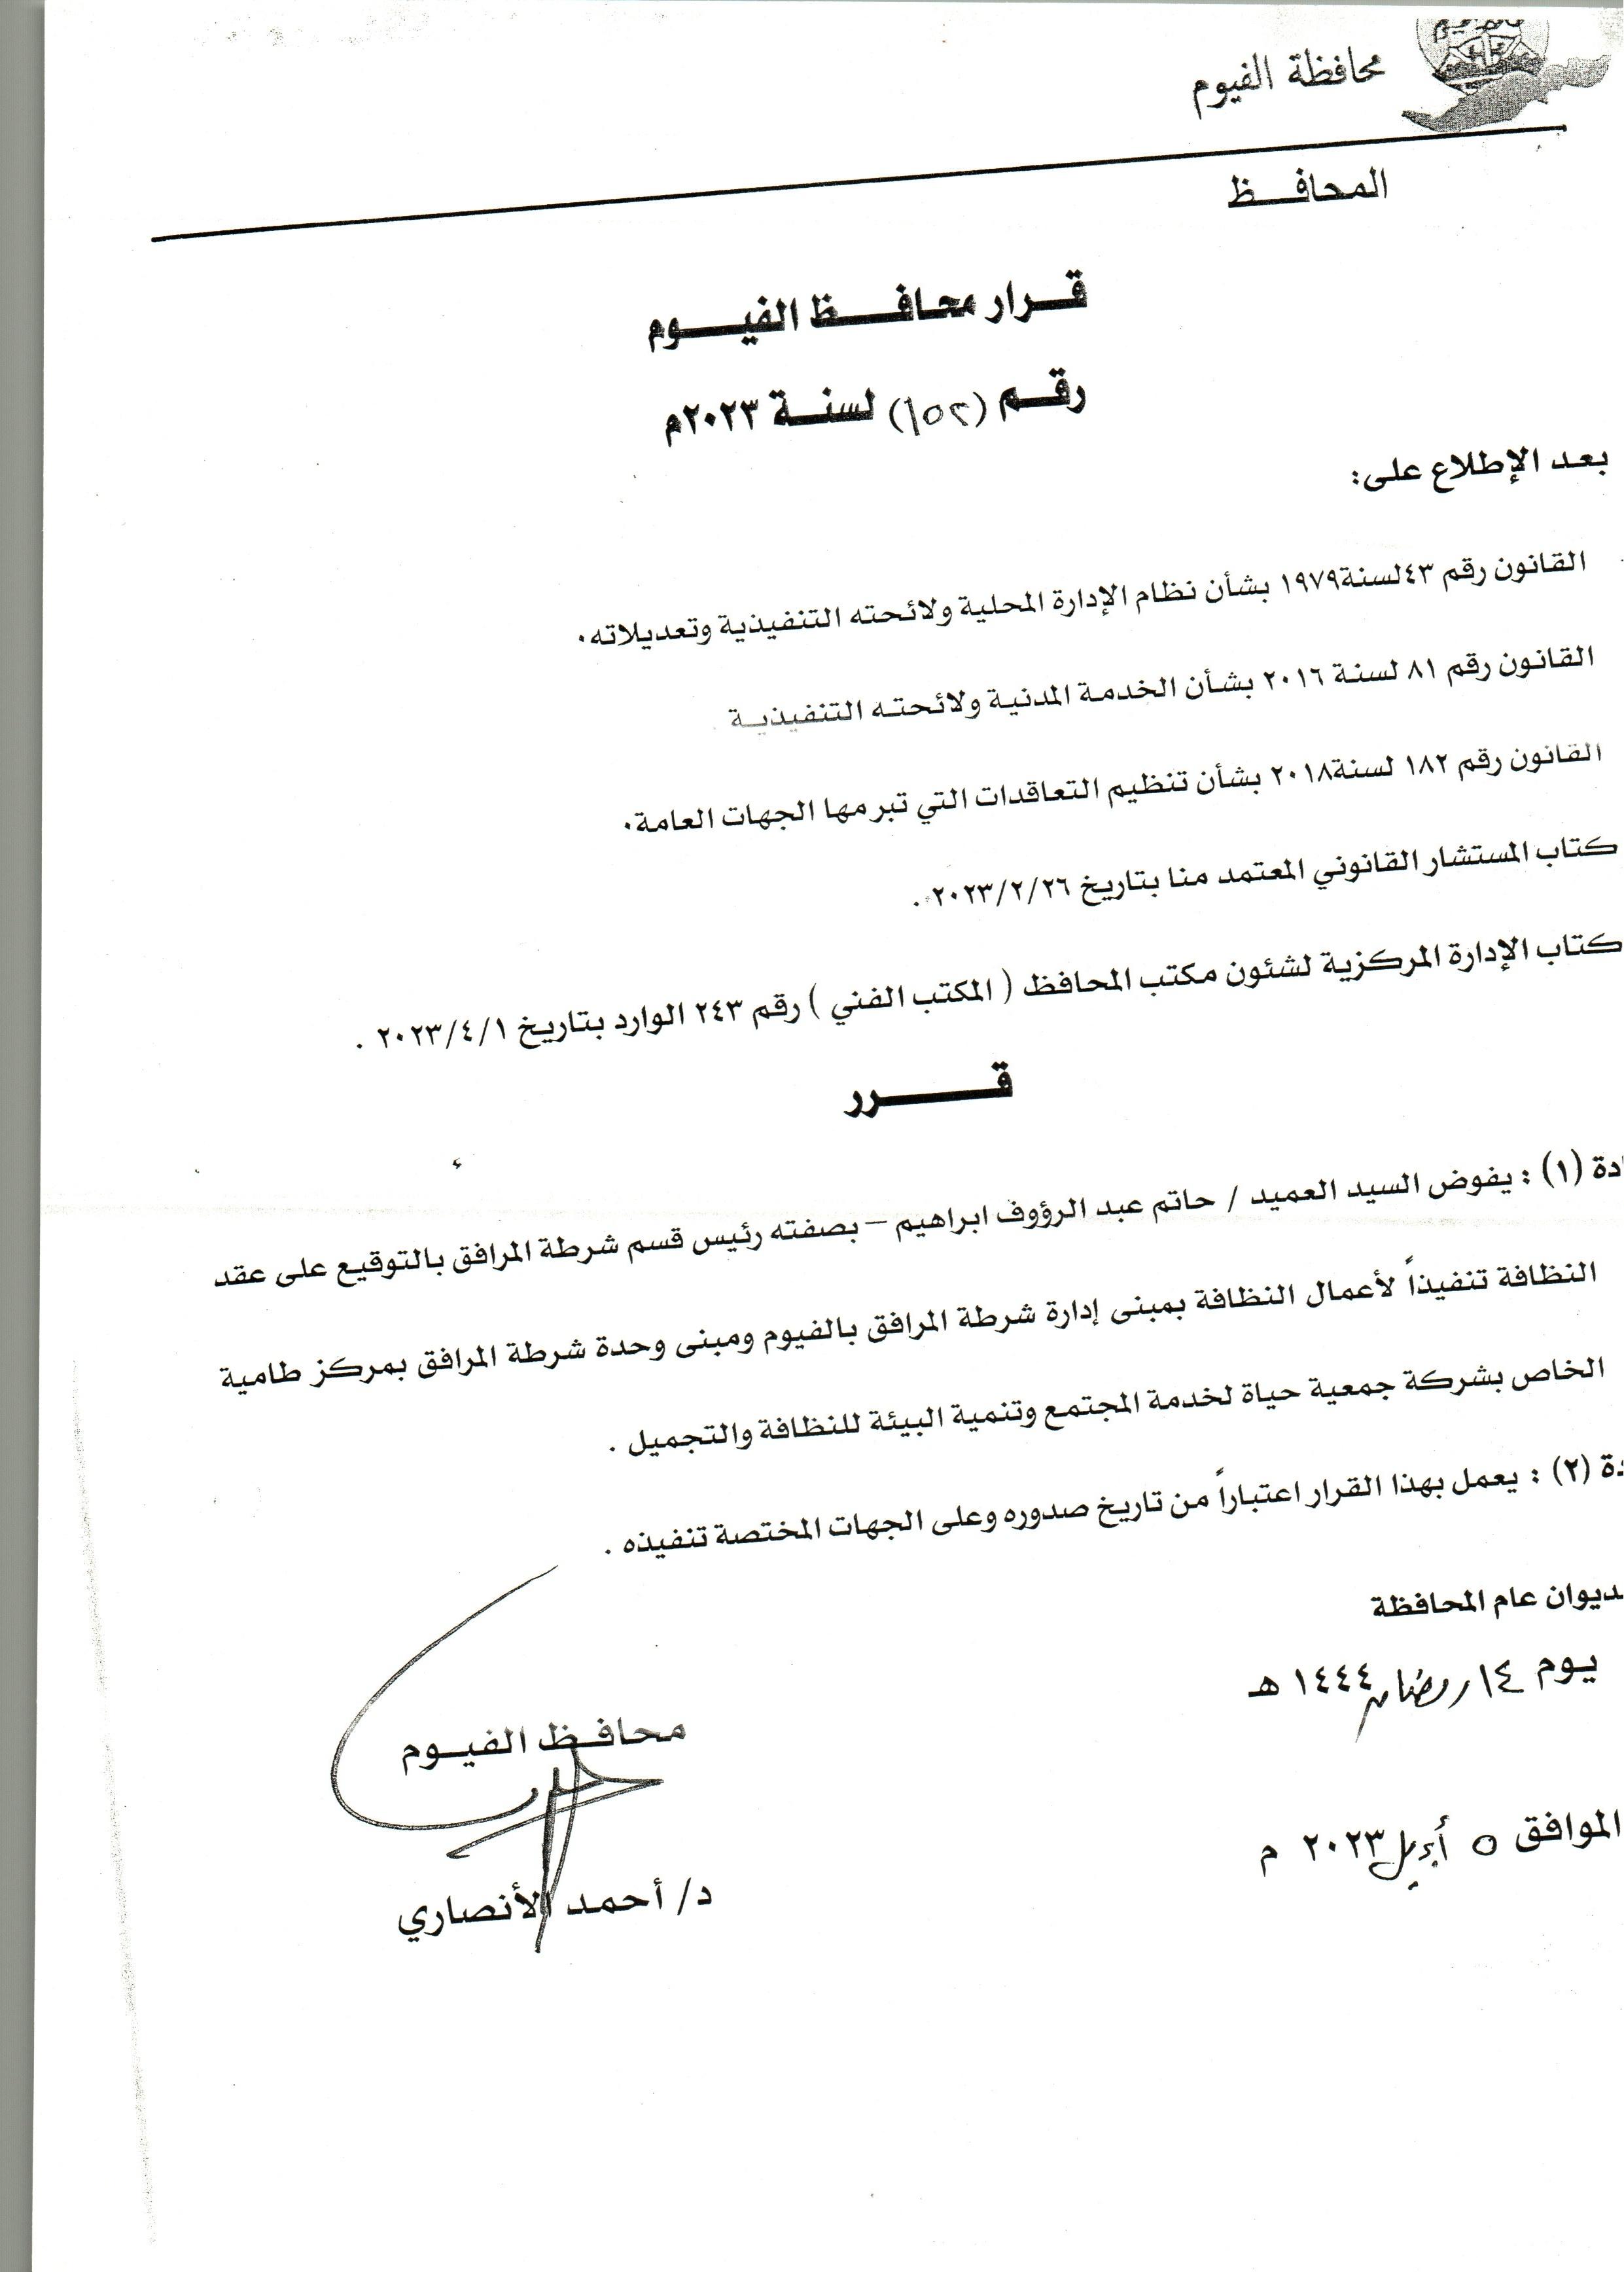 محافظة الفيوم
المحافظ
قرار محافظ الفيوم
رقم (١٥٢) لسنة ٢٠٢٣م
بعد الإطلاع على:
القانون رقم ٤٣لسنة١٩٧٩ بشأن نظام الإدارة المحلية ولائحته التنفيذية وتعديلاته.
القانون رقم ٨١ لسنة ٢٠١٦ بشأن الخدمة المدنية ولائحته التنفيذية
القانون رقم ١٨٢ لسنة٢٠١٨ بشأن تنظيم التعاقدات التي تبرمها الجهات العامة.
كتاب المستشار القانوني المعتمد منا بتاريخ ٢٠٢٣/٢/٢٦ .
كتاب الإدارة المركزية لشئون مكتب المحافظ ( المكتب الفني ) رقم ٢٤٣ الوارد بتاريخ ٢٠٢٣/٤/١ .
قرر
ادة (١) : يفوض السيد العميد / حاتم عبد الرؤوف ابراهيم – بصفته رئيس قسم شرطة المرافق بالتوقيع على عقد
النظافة تنفيذاً لأعمال النظافة بمبنى إدارة شرطة المرافق بالفيوم ومبنى وحدة شرطة المرافق بمركز طامية
الخاص بشركة جمعية حياة لخدمة المجتمع وتنمية البيئة للنظافة والتجميل .
دة (٢) : يعمل بهذا القرار اعتباراً من تاريخ صدوره وعلى الجهات المختصة تنفيذه .
ديوان عام المحافظة
يوم ١٤ رمضان ١٤٤٤ هـ
الموافق ٥ أبريل ٢٠٢٣ م
محافظ الفيوم
د/ أحمد الأنصاري